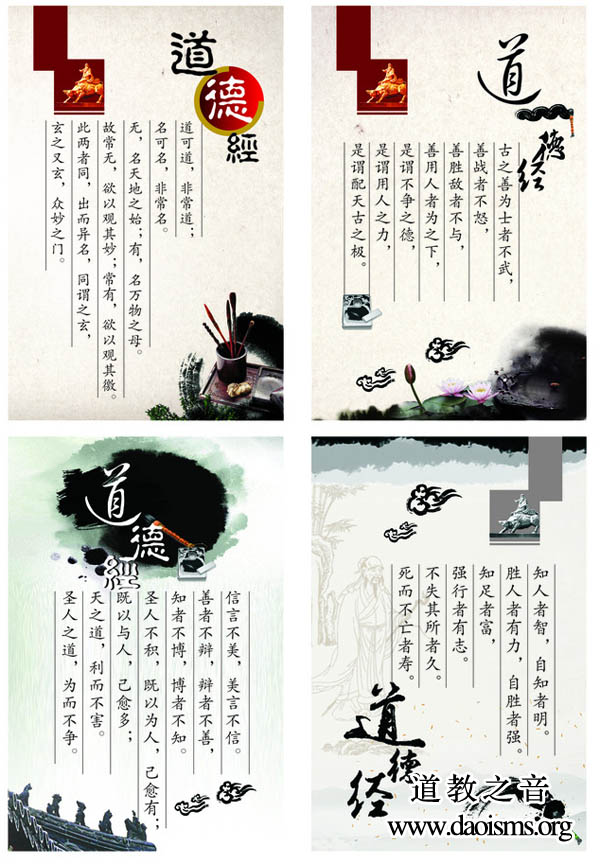 道德經
道可道，非常道；
名可名，非常名。
无，名天地之始；有，名万物之母。
故常无，欲以观其妙；常有，欲以观其徼。
此两者同，出而异名，同谓之玄，
玄之又玄，众妙之门。
道德经
古之善为士者不武，
善战者不怒，
善胜敌者不与，
善用人者为之下，
是谓不争之德，
是谓用人之力，
是谓配天古之极。
道德經
信言不美，美言不信。
善者不辩，辩者不善，
知者不博，博者不知。
圣人不积，既以为人，己愈有；
既以与人，己愈多；
天之道，利而不害。
圣人之道，为而不争。
知人者智，自知者明。
胜人者有力，自胜者强。
知足者富，
强行者有志。
不失其所者久。
死而不亡者寿。
道德经
道教之音
www.daoisms.org